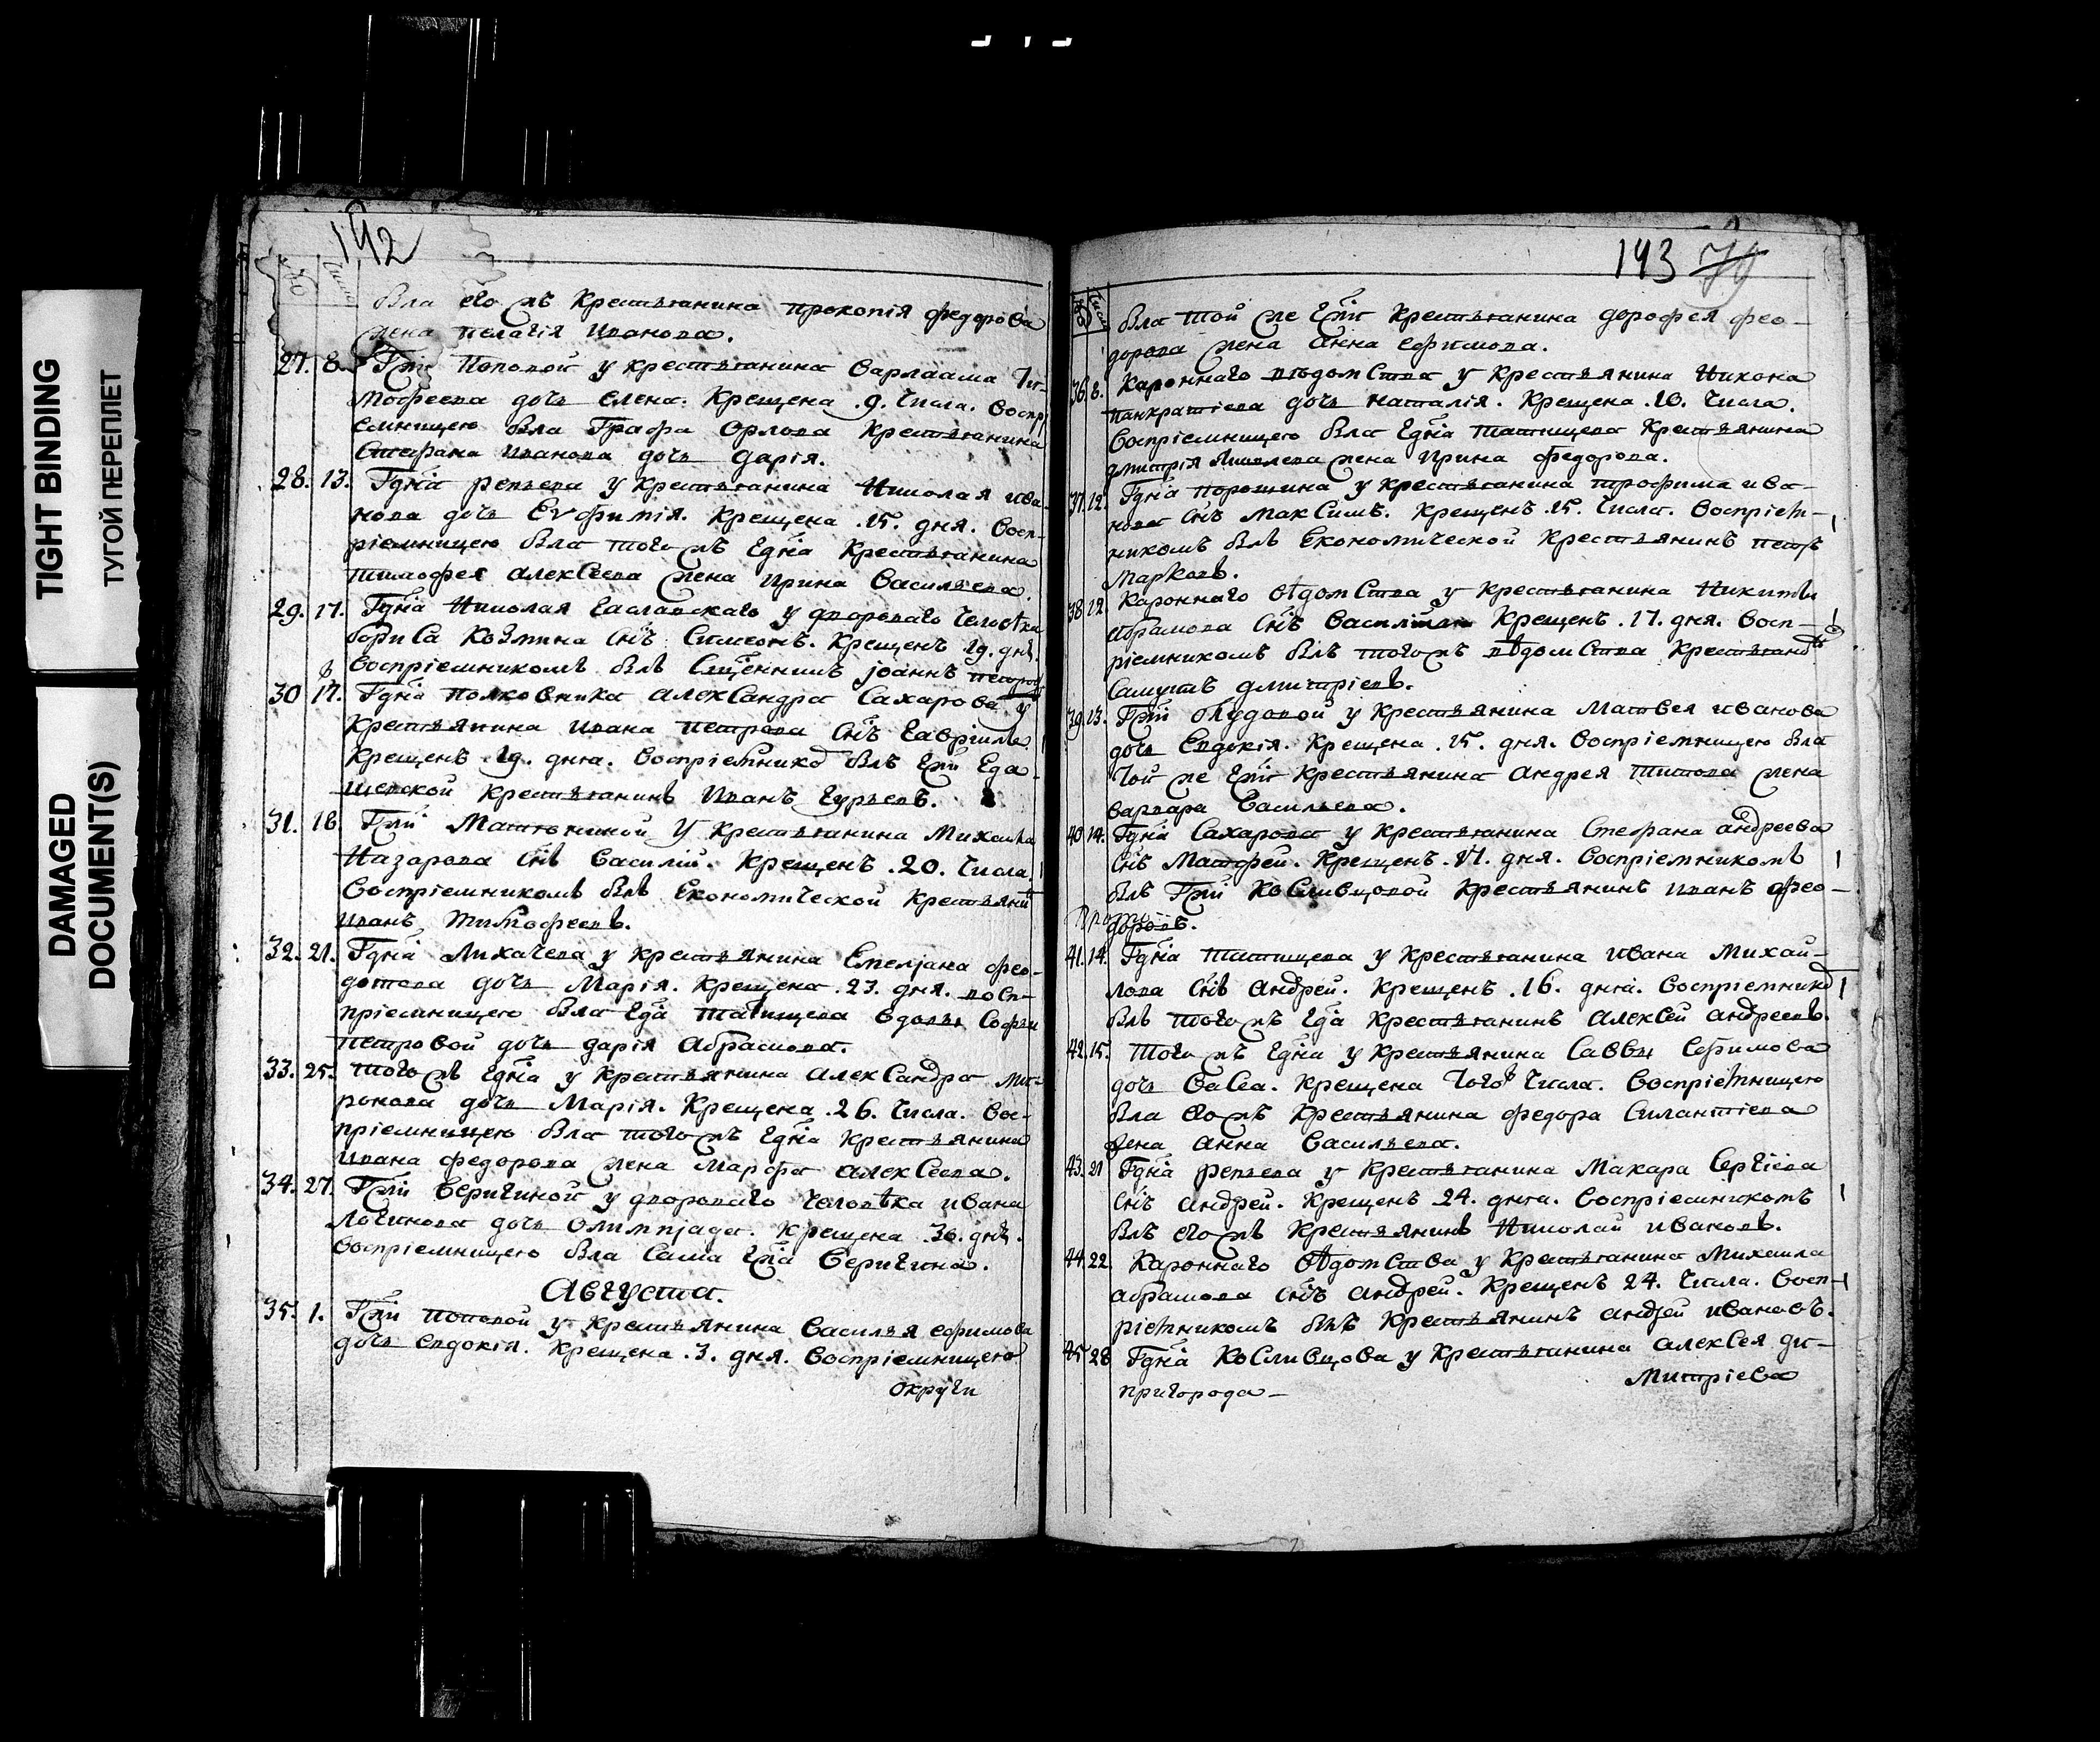 TIGHT BINDING
ТУГОЙ ПЕРЕПЛЕТ
DAMAGED
DOCUMENT(S)
192
была его жъ крестьянина прокопія федорова
жена пелагія иванова.
27. 8. Гжи поповой у крестьянина варлаама ти-
мофеева дочь елена. крещена .9. числа. воспр
емницею была графа орлова крестьянина
стефана иванова дочь дарія.
28. 13. Гдна репьева у крестьянина николая ива-
нова дочь Еѵфимія. крещена .15. дня. восп-
ріемницею была того жъ Гдна крестьянина
тимофея алексеева жена ирина васильева.
29. 17. Гдна николая еаславскаго у двороваго человека
бориса козмина снъ симеонъ. крещенъ 19. дня.
воспріемникомъ былъ сщенникъ іоаннъ петров
30 17. Гдна полковника александра сахарова у
крестьянина ивана петрова снъ гавріилъ.
крещенъ 19. дня. воспріемнико былъ Гжи Еда-
шевской крестьянинъ иванъ гурьевъ.
31. 18. Гжи матюниной у крестьянина михаила
назарова снъ василій. крещенъ .20. числа.
воспріемникомъ былъ економической крестьяни
иванъ тимофеевъ.
32. 21. Гдна лихачева у крестьянина емеліана фео-
дотова дочь марія. крещена .23. дня. восп-
пріемницею была Гда татищева вдовы софьи
петровой дочь дарія абрамова.
33. 25. того жъ Гдна у крестьянина александра ми-
ронова дочь марія. крещена .26. числа. вос-
пріемницею была того жъ Гдна крестьянина
ивана федорова жена марфа алексеева.
34. 27. Гжи веригиной у двороваго человѣка ивана
логинова дочь олимпіада. крещена .30. дня.
воспріемницею была сама Гжа веригина.
Августа.
35. 1. Гжи поповой у крестьянина василья ефимова
дочь евдокія. крещена .3. дня. воспріемницею
округи
193 79
была той же Гжи крестьянина дорофея фео-
дорова жена анна ефимова.
36. 8. кароннаго вѣдомства у крестьянина никона
панкратіева дочь наталія. крещена .10. числа.
воспріемницею была Гдна татищева крестьянина
дмитрія яковлева жена ирина федорова.
37. 12. Гдна порошина у крестьянина трофима ива-
нова снъ максимъ. крещенъ .15. числа. воспріем-
никомъ былъ економической крестьянинъ петръ
марковъ.
38. 12. кароннаго вѣдомства у крестьянина никиты
абрамова снъ василій крещенъ .17. дня. восп-
ріемникомъ былъ того жъ вѣдомства крестьянинъ
самуилъ дмитріевъ.
39. 13. Гжи обудовой у крестьянина матвея иванова
дочь евдокія. крещена .15. дня. воспріемницею была
той же Гжи крестьянина андрея титова жена
варвара васильева.
40. 14. Гдна сахарова у крестьянина стефана андреева
снъ матфей. крещенъ .17. дня. воспріемникомъ
былъ Гжи косливцовой крестьянинъ иванъ фео-
доровъ.
41. 14. Гдна татищева у крестьянина ивана михай-
лова снъ андрей. крещенъ .16. дня. воспріемнико
былъ того жъ Гда крестьянинъ алексей андреевъ.
42. 15. того жъ Гдна у крестьянина саввы ефимова
дочь васса. крещена того числа. воспріемницею
была его жъ крестьянина федора силантіева
жена анна васильева.
43. 21 Гдна репьева у крестьянина макара сергіева
снъ андрей. крещенъ 24. дня. воспріемникомъ
былъ его жъ крестьянинъ николай ивановъ.
44. 22. кароннаго вѣдомства у крестьянина михаила
абрамова снъ андрей. крещенъ 24. числа. восп-
ріемникомъ былъ крестьянинъ андрей ивановъ.
45 28 Гдна косливцова у крестьянина алексея ди-
пригорода- митріева